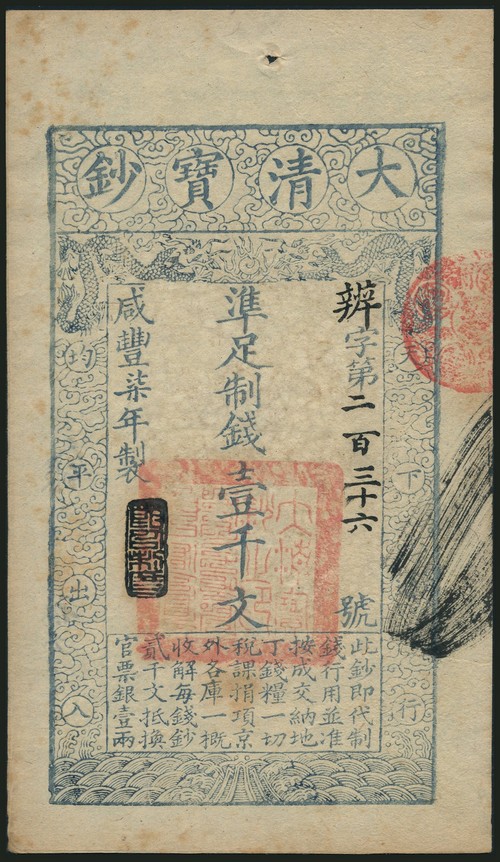 大清寶鈔
天下
行
辨字第二百三十六號
準足制錢壹千文
咸豐柒年製
均平出入
此鈔即代制
錢行用並准
按成交納地
丁錢糧一切
稅課捐項京
外各庫一概
收解每錢鈔
貳千文抵換
官票銀壹兩